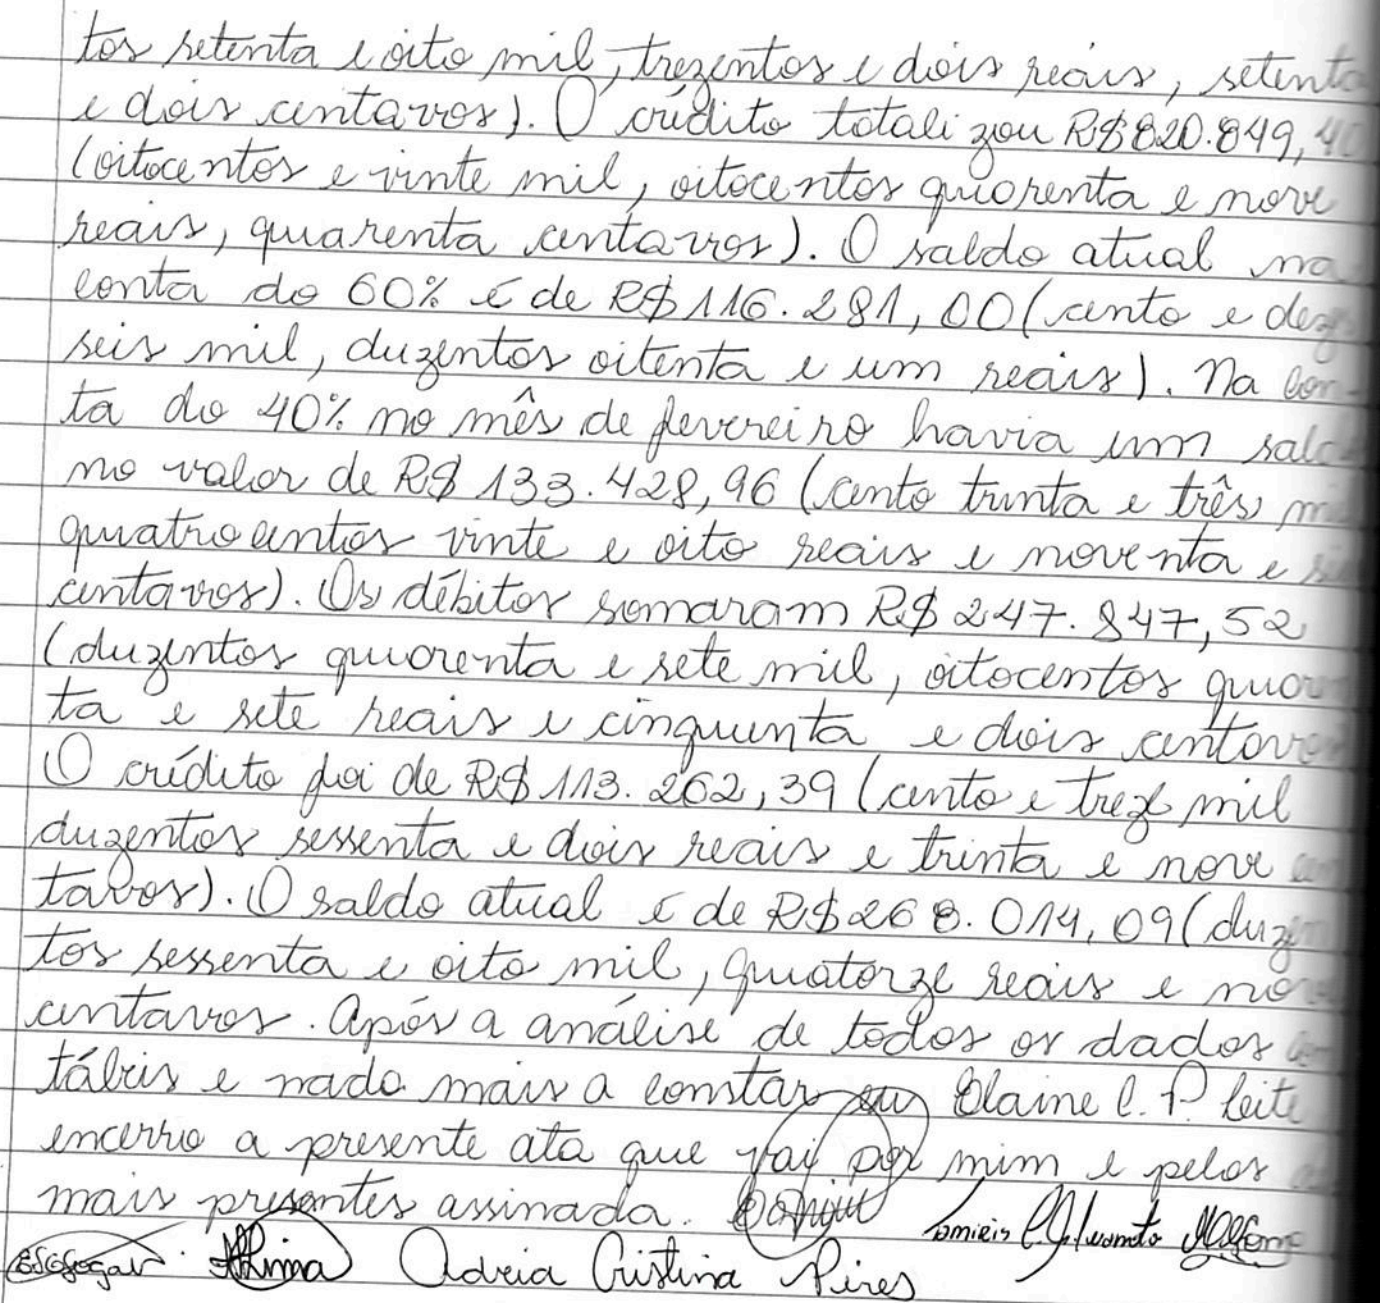 tos setenta e oito mil, trezentos e dois reais, setenta
e dois centavos). O crédito totalizou R$ 820.849,40
(oitocentos e vinte mil, oitocentos quarenta e nove
reais, quarenta centavos). O saldo atual na
conta do 60% é de R$ 116.281,00 (cento e deze
seis mil, duzentos oitenta e um reais). Na con-
ta do 40% no mês de fevereiro havia um sald
no valor de R$ 133.428,96 (cento trinta e três mil
quatrocentos vinte e oito reais e noventa e seis
centavos). Os débitos somaram R$ 247.847,52
(duzentos quarenta e sete mil, oitocentos quaren
ta e sete reais e cinquenta e dois centavos
O crédito foi de R$ 113.262,39 (cento e treze mil
duzentos sessenta e dois reais e trinta e nove cen
tavos). O saldo atual é de R$ 268.014,09 (duzen
tos sessenta e oito mil, quatorze reais e nove
centavos. Após a análise de todos os dados con
tábeis e nada mais a constar eu Elaine C. P. Leite
encerro a presente ata que vai por mim e pelos de
mais presentes assinada.
Adreia Cristina Pires